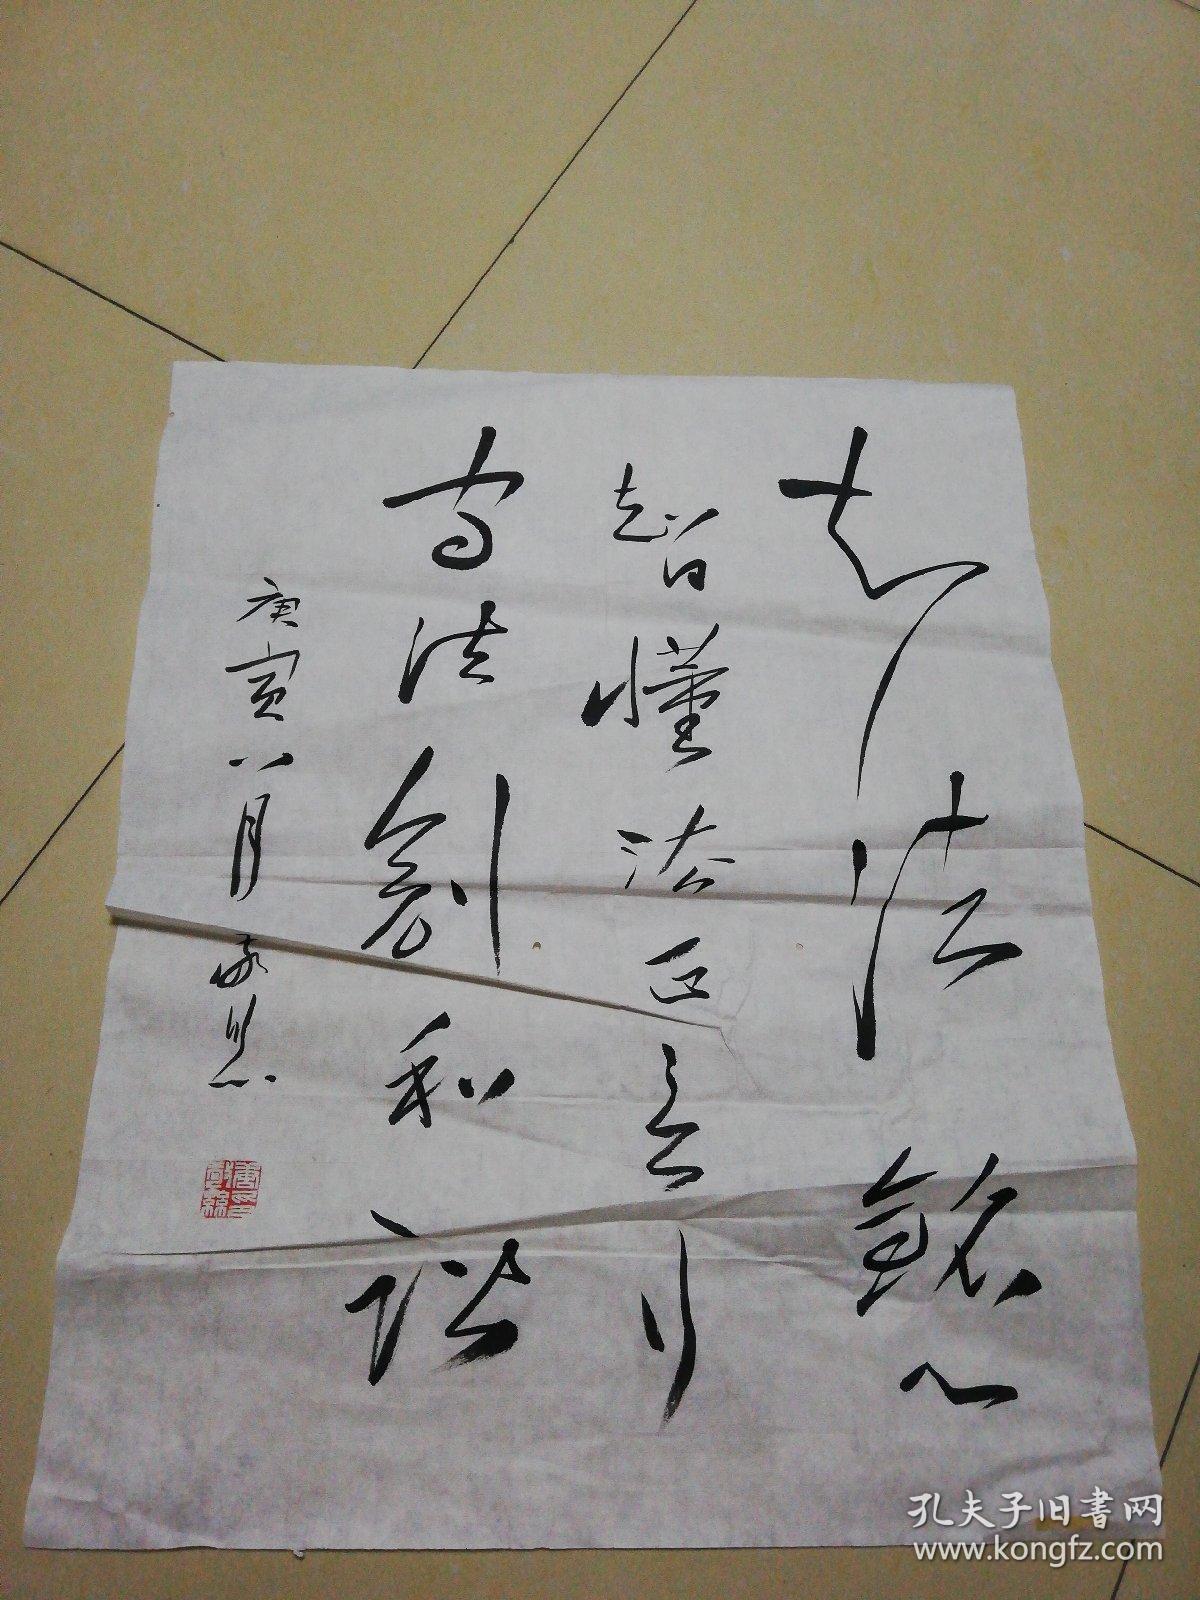 知法铭心
智懂法正言行
守法創和谐
庚寅八月
孔夫子旧书网
www.kongfz.com